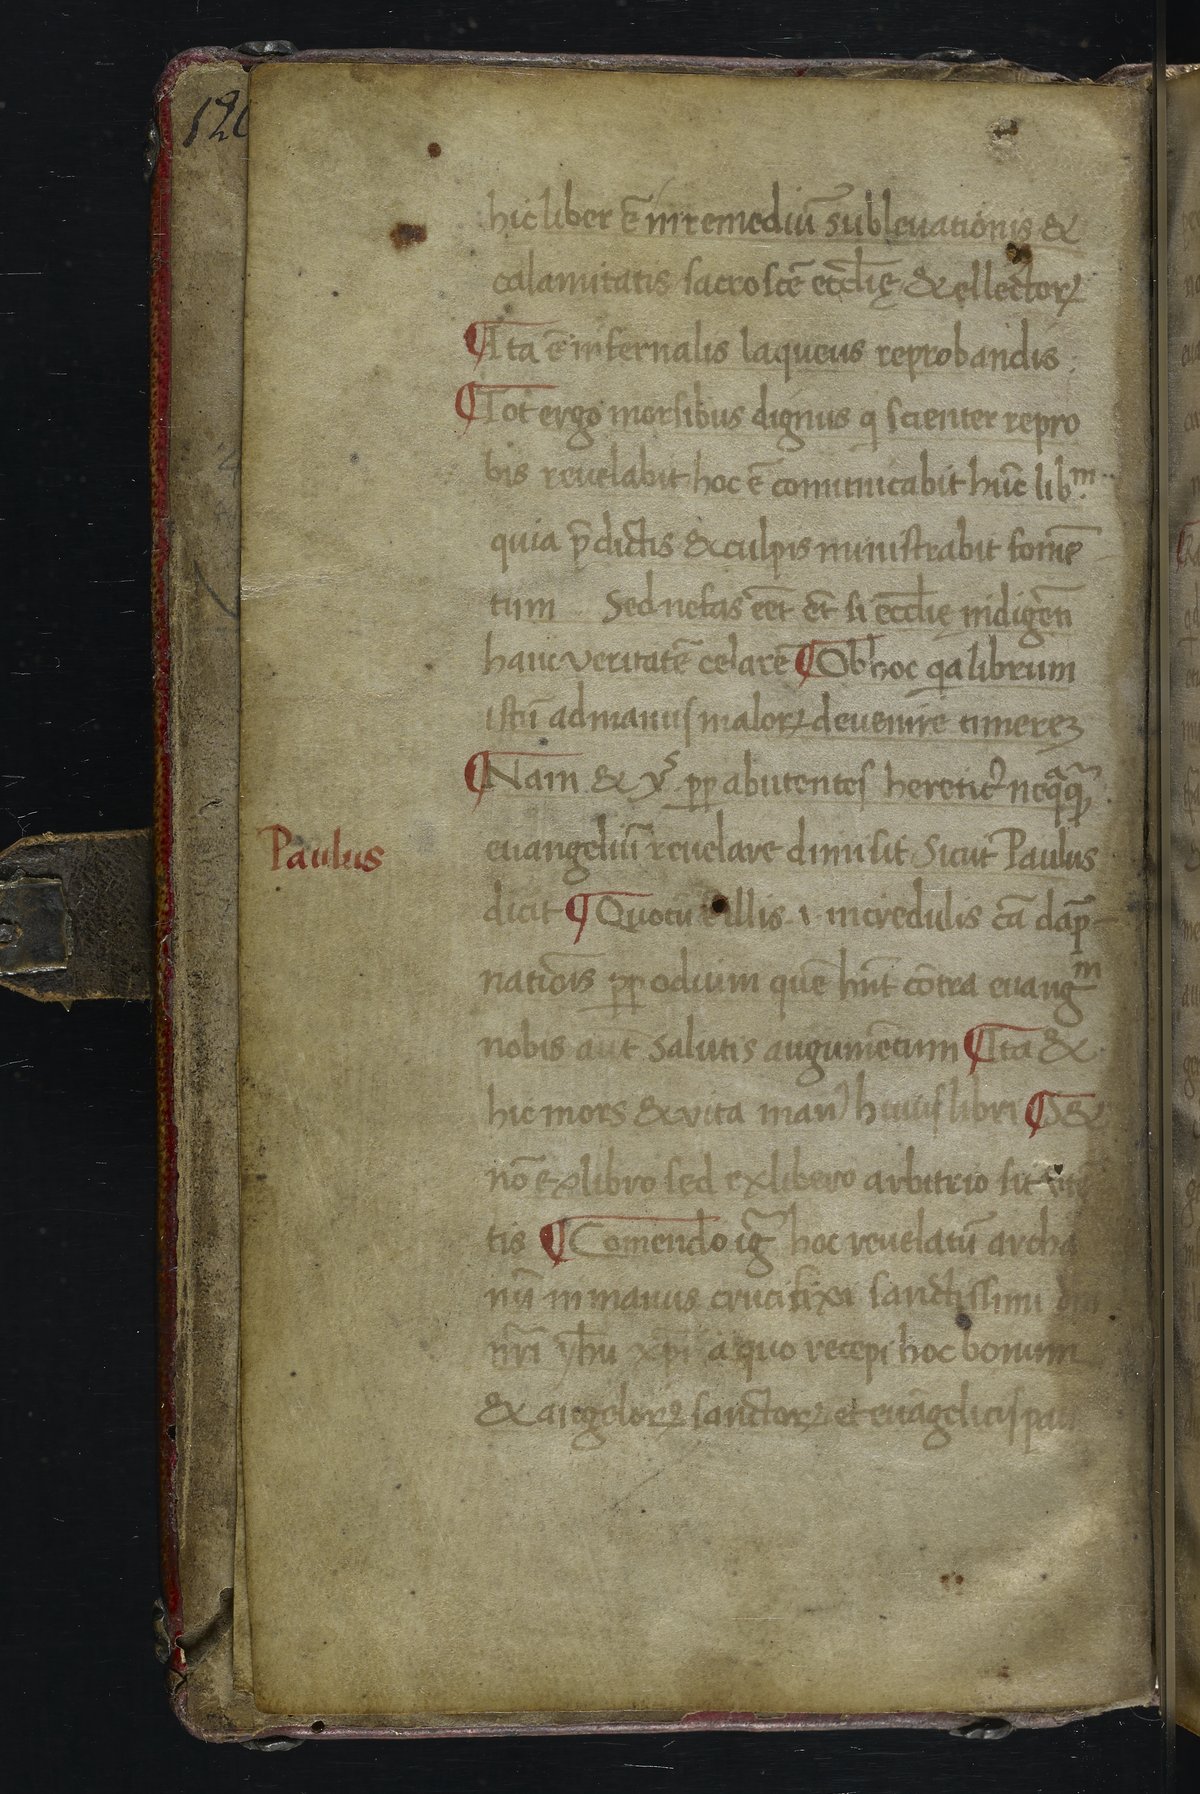 120
hic liber ē in remediū sublevationis &
calamitatis sacro scē ecclīę & ellectoꝝ
¶ Ita ē infernalis laqueus reprobandis .
¶ Tot ergo morsibus dignus q scienter repro
bis revelabit hoc ē comunicabit hūc libᵐ.
quia p̄dictis & culpis ministrabit fomē
tum Sed nefas eēt & si ecclīę indigēti
hanc veritatē celare ¶ Ob hoc qa librum
istū ad manus maloꝝ devenire timerez
¶ Nam & pp abutentes
Paulus
euangeliū revelare dimisit Sicut Paulus
dicit ¶ Quocū illis .i. incredulis cā dāp
nationis pp odium quē hnt cōtra euangᵐ
nobis aut salutis augumētum ¶ Ita &
hic mors & vita huius libri ¶ &
nō ex libro sed ex libero arbitrio sit
tis ¶ Comendo igr̄ hoc revelatū archa
nū in manus crucifixi sanctissimi dni
nr̄i yhū xp̄i a quo recepi hoc bonum
& angeloꝝ sanctoꝝ et euāgelicis